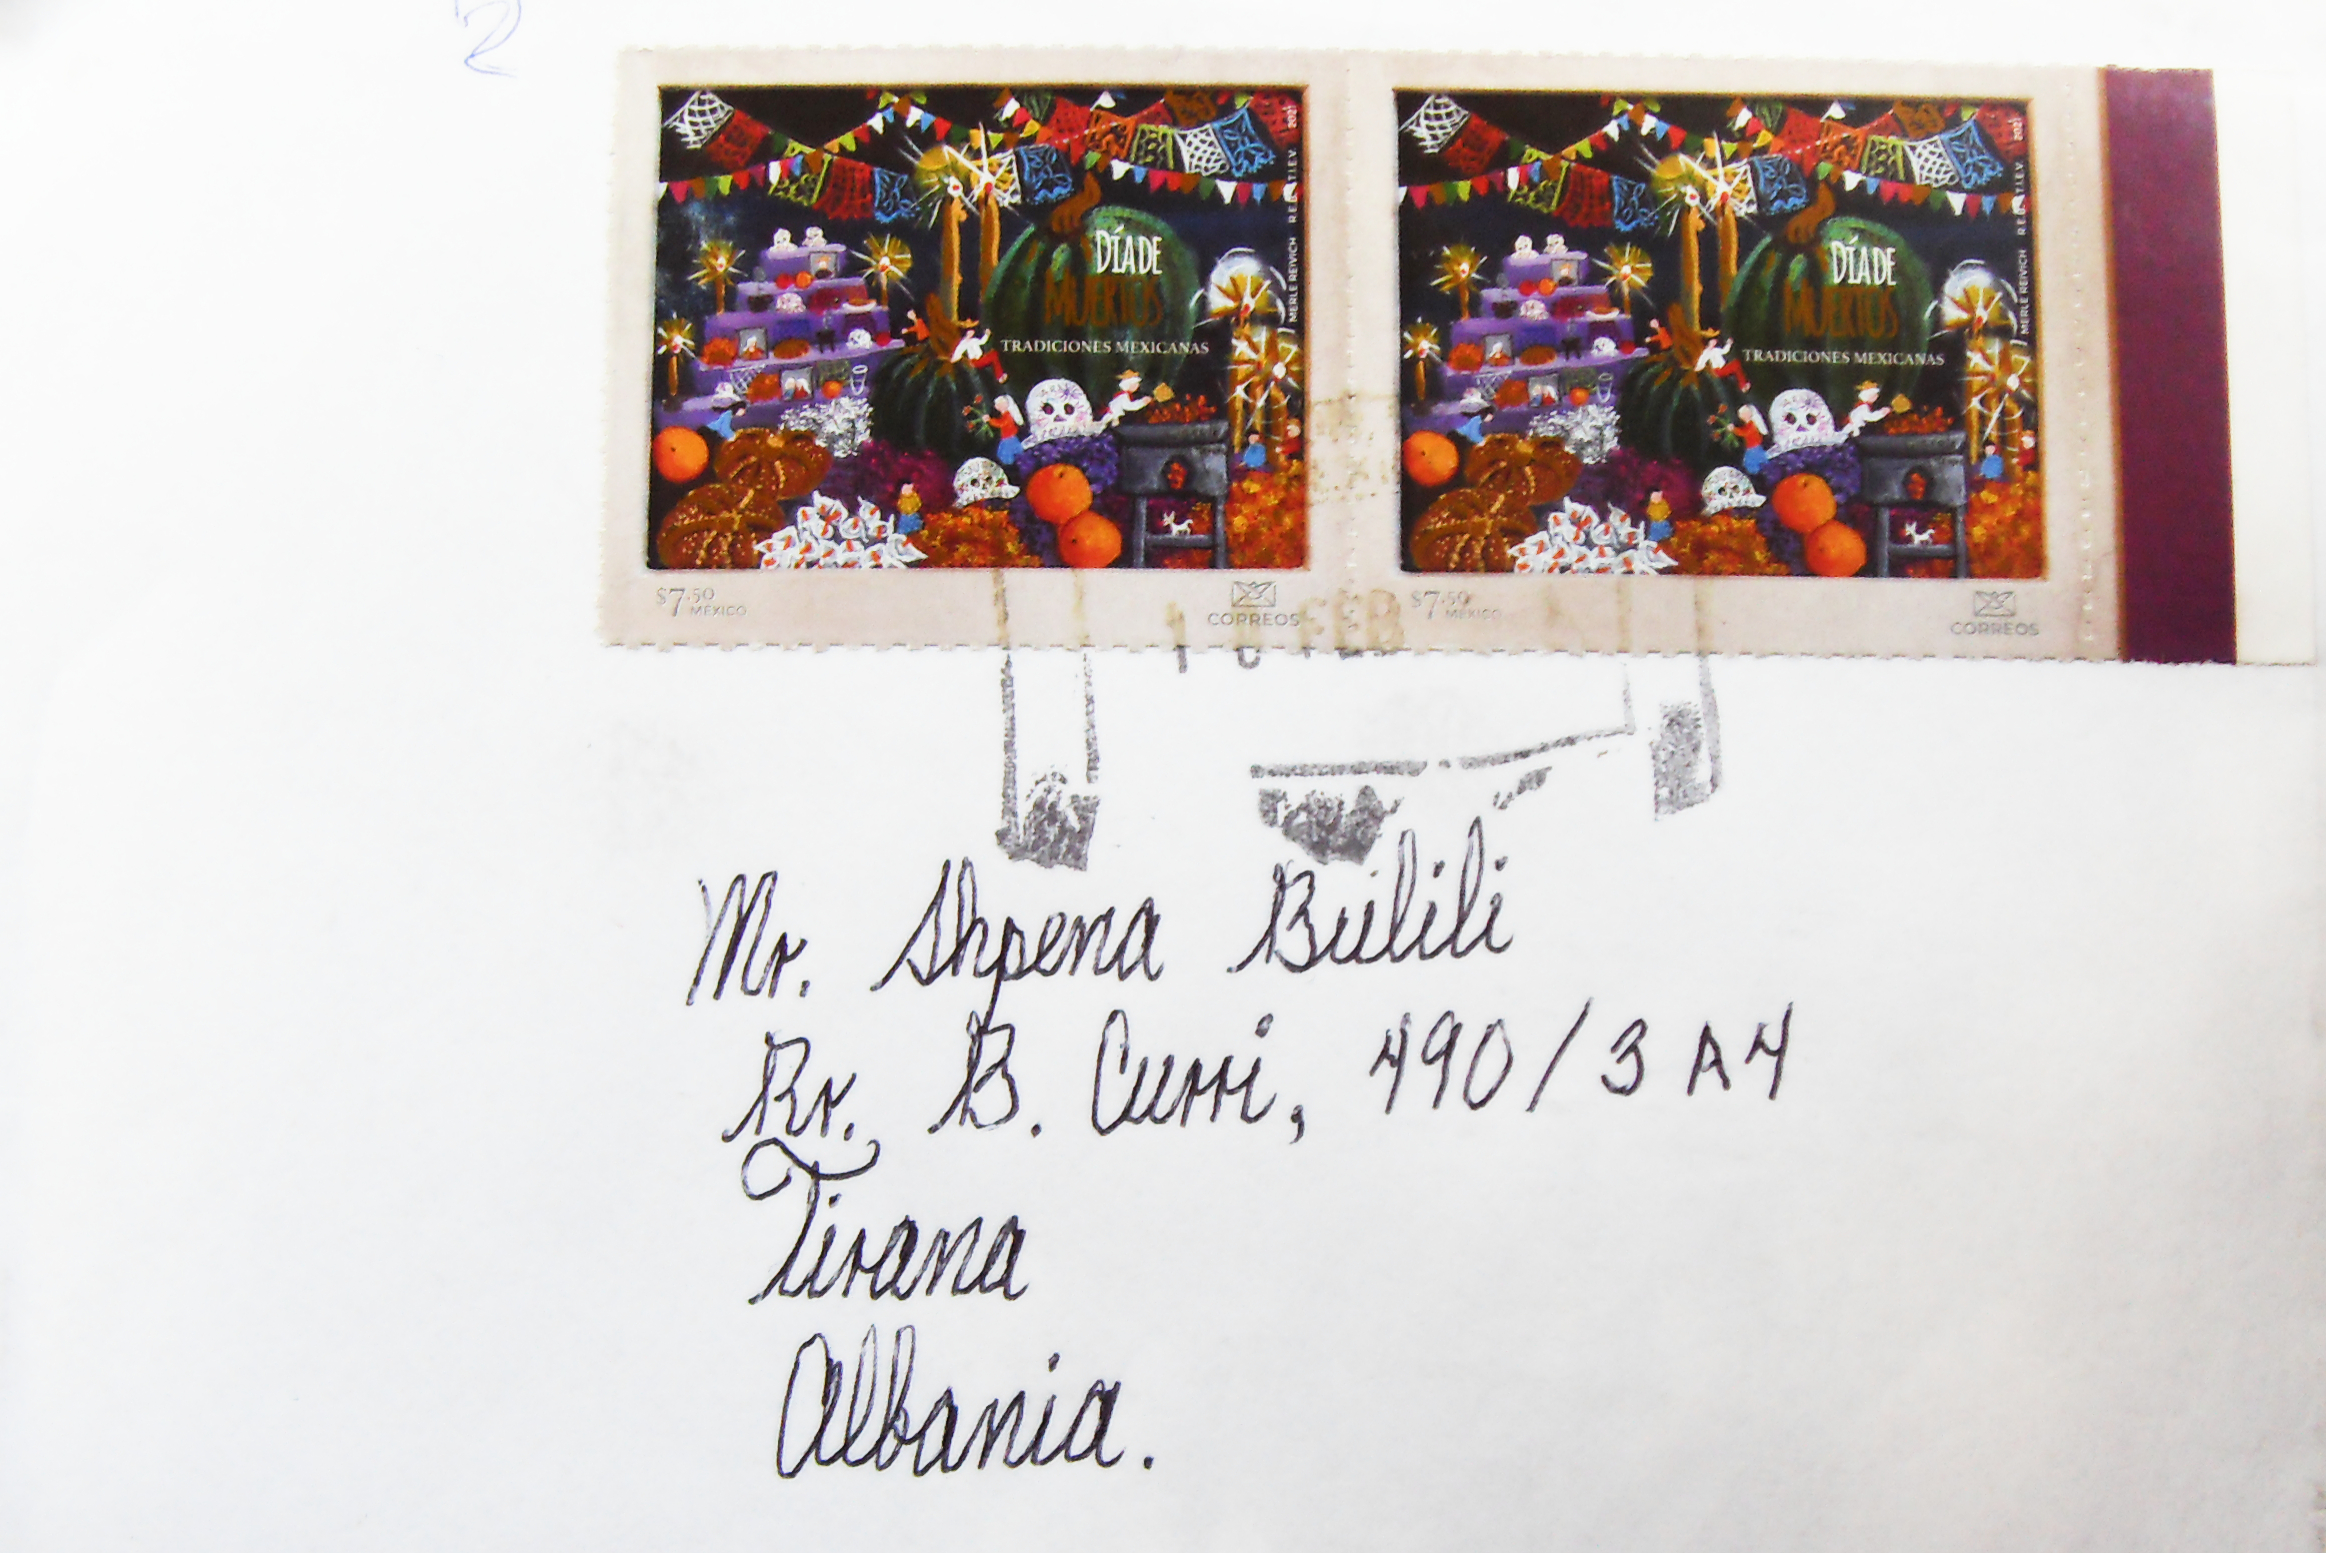 2
DÍA DE
MUERTOS
TRADICIONES MEXICANAS
MERLE REIVICH
2021
$7.50
MÉXICO
CORREOS
DÍA DE
MUERTOS
TRADICIONES MEXICANAS
MERLE REIVICH
2021
$7.50
MÉXICO
CORREOS
FEB
Mr. Shpena Bulili
Rr. B. Curri, 490/3 A4
Tirana
Albania.